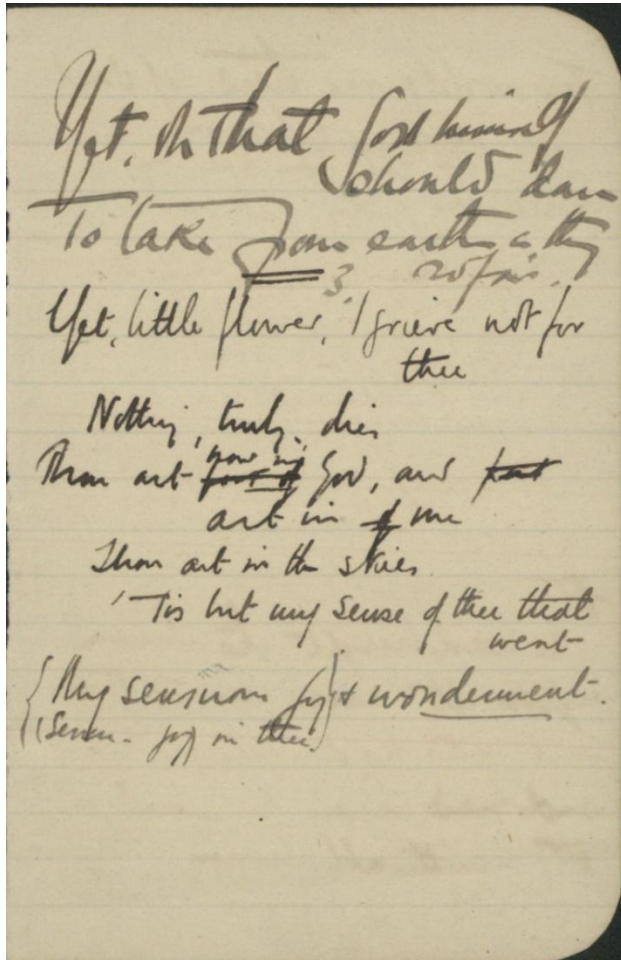 Yet, oh that God himself
should dare
To take from earth a thing
so fair.
3.
Yet, little flower, I grieve not for
thee
Nothing, truly, dies
now in
Thou art part of God, and part
art in of me
Thou art in the skies.
'Tis but my sense of thee that
went
{My sensuous joy & wonderment.
(Sense- joy in thee)